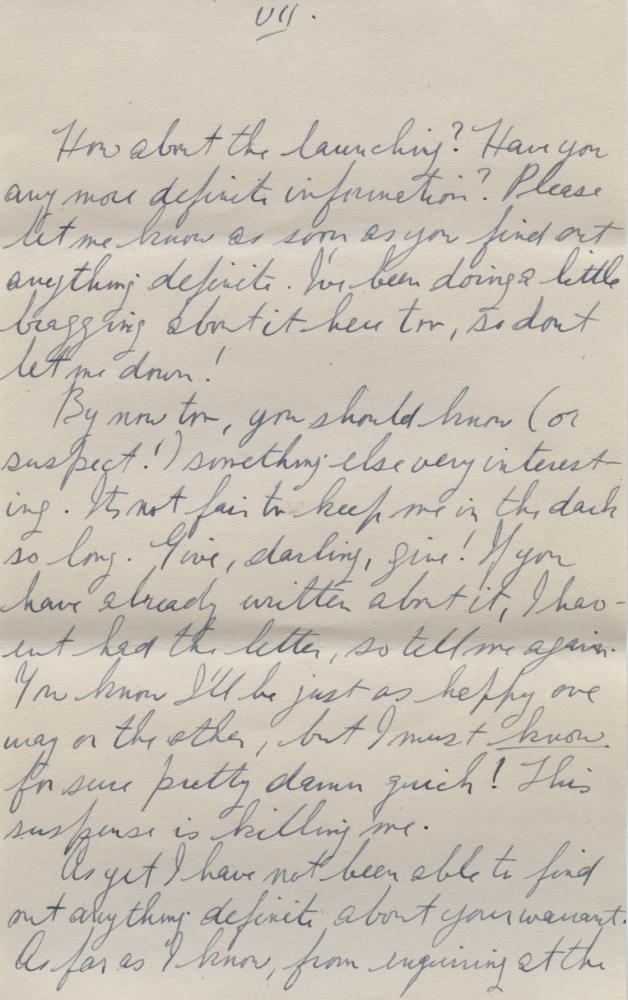 VII.
How about the launching? Have you
any more definite information? Please
let me know as soon as you find out
anything definite. I've been doing a little
bragging about it here too, so dont
let me down!
By now too, you should know (or
suspect!) something else very interest-
ing. Its not fair to keep me in the dark
so long. Give, darling, give! If you
have already written about it, I hav-
ent had the letter, so tell me again.
You know I'll be just as happy one
way or the other, but I must know
for sure pretty damn quick! This
suspense is killing me.
As yet I have not been able to find
out anything definite about your warrant.
As far as I know, from enquiring at the